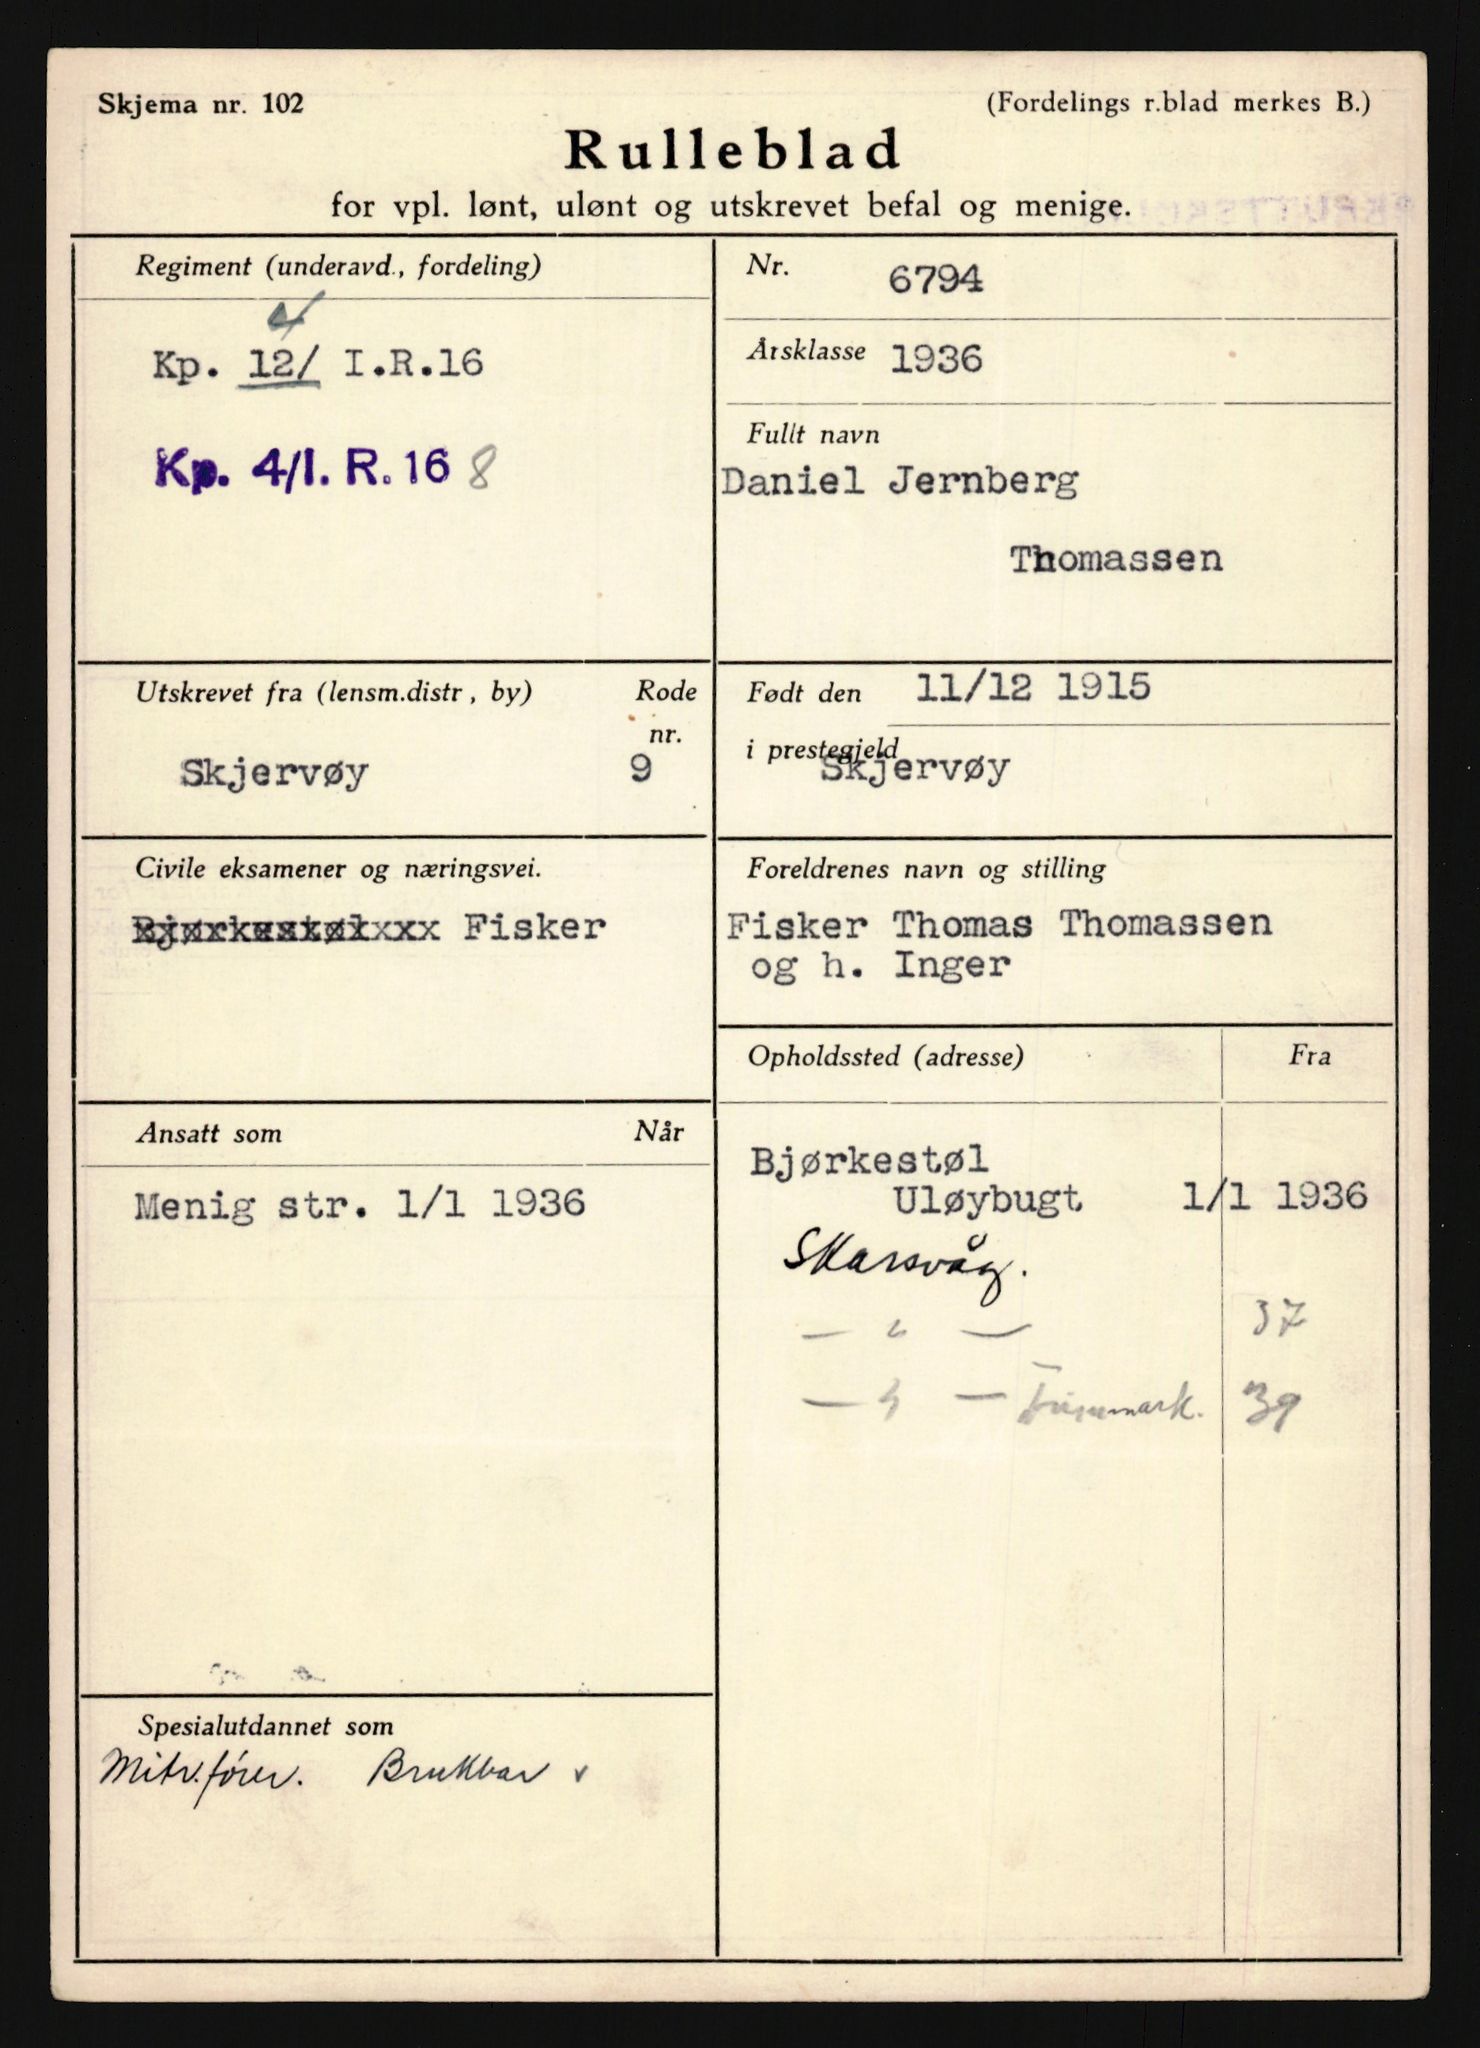 Skjema nr. 102
(Fordelings r.blad merkes B.)
Rulleblad
for vpl. lønt, ulønt og utskrevet befal og menige.
Regiment (underavd., fordeling)
4
Kp. 12/ I.R.16
Kp. 4/I. R. 16 8
Nr. 6794
Årsklasse 1936
Fullt navn
Daniel Jernberg
Thomassen
Utskrevet fra (lensm.distr, by) Rode
nr.
Skjervøy 9
Født den 11/12 1915
i prestegjeld Skjervøy
Civile eksamener og næringsvei.
Bjørkestølxxx Fisker
Foreldrenes navn og stilling
Fisker Thomas Thomassen
og h. Inger
Ansatt som Når
Menig str. 1/1 1936
Opholdssted (adresse) Fra
Bjørkestøl
Uløybugt 1/1 1936
Skarsvåg.
— " — 37
— " — Finnmark. 39
Spesialutdannet som
Mitr.fører. Brukbar v